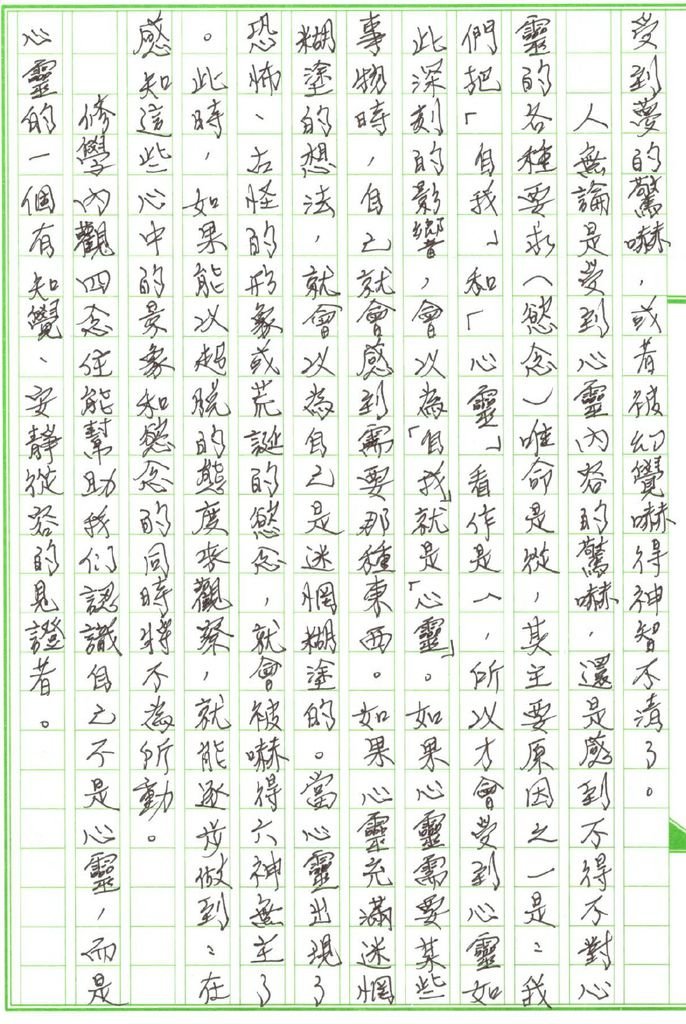 受到夢的驚嚇，或者被幻覺嚇得神智不清了。
人無論是受到心靈內容的驚嚇，還是感到不得不對心
靈的各種要求（慾念）唯命是從，其主要原因之一是：我
們把「自我」和「心靈」看作是一，所以才會受到心靈如
此深刻的影響，會以為「自我」就是「心靈」。如果心靈需要某些
事物時，自己就會感到需要那種東西。如果心靈充滿迷惘
糊塗的想法，就會以為自己是迷惘糊塗的。當心靈出現了
恐怖、古怪的形象或荒誕的慾念，就會被嚇得六神無主了
。此時，如果能以超脫的態度來觀察，就能逐步做到：在
感知這些心中的景象和慾念的同時將不為所動。
修學內觀四念住能幫助我们認識自己不是心靈，而是
心靈的一個有知覺、安靜從容的見證者。